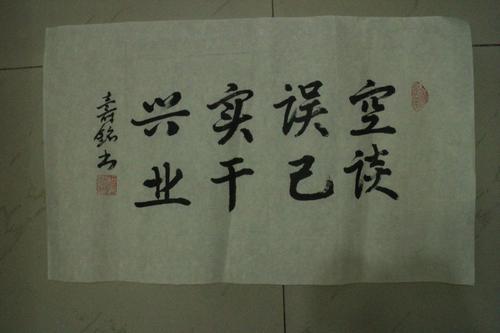 空谈
误己
实干
兴业
寿铭书